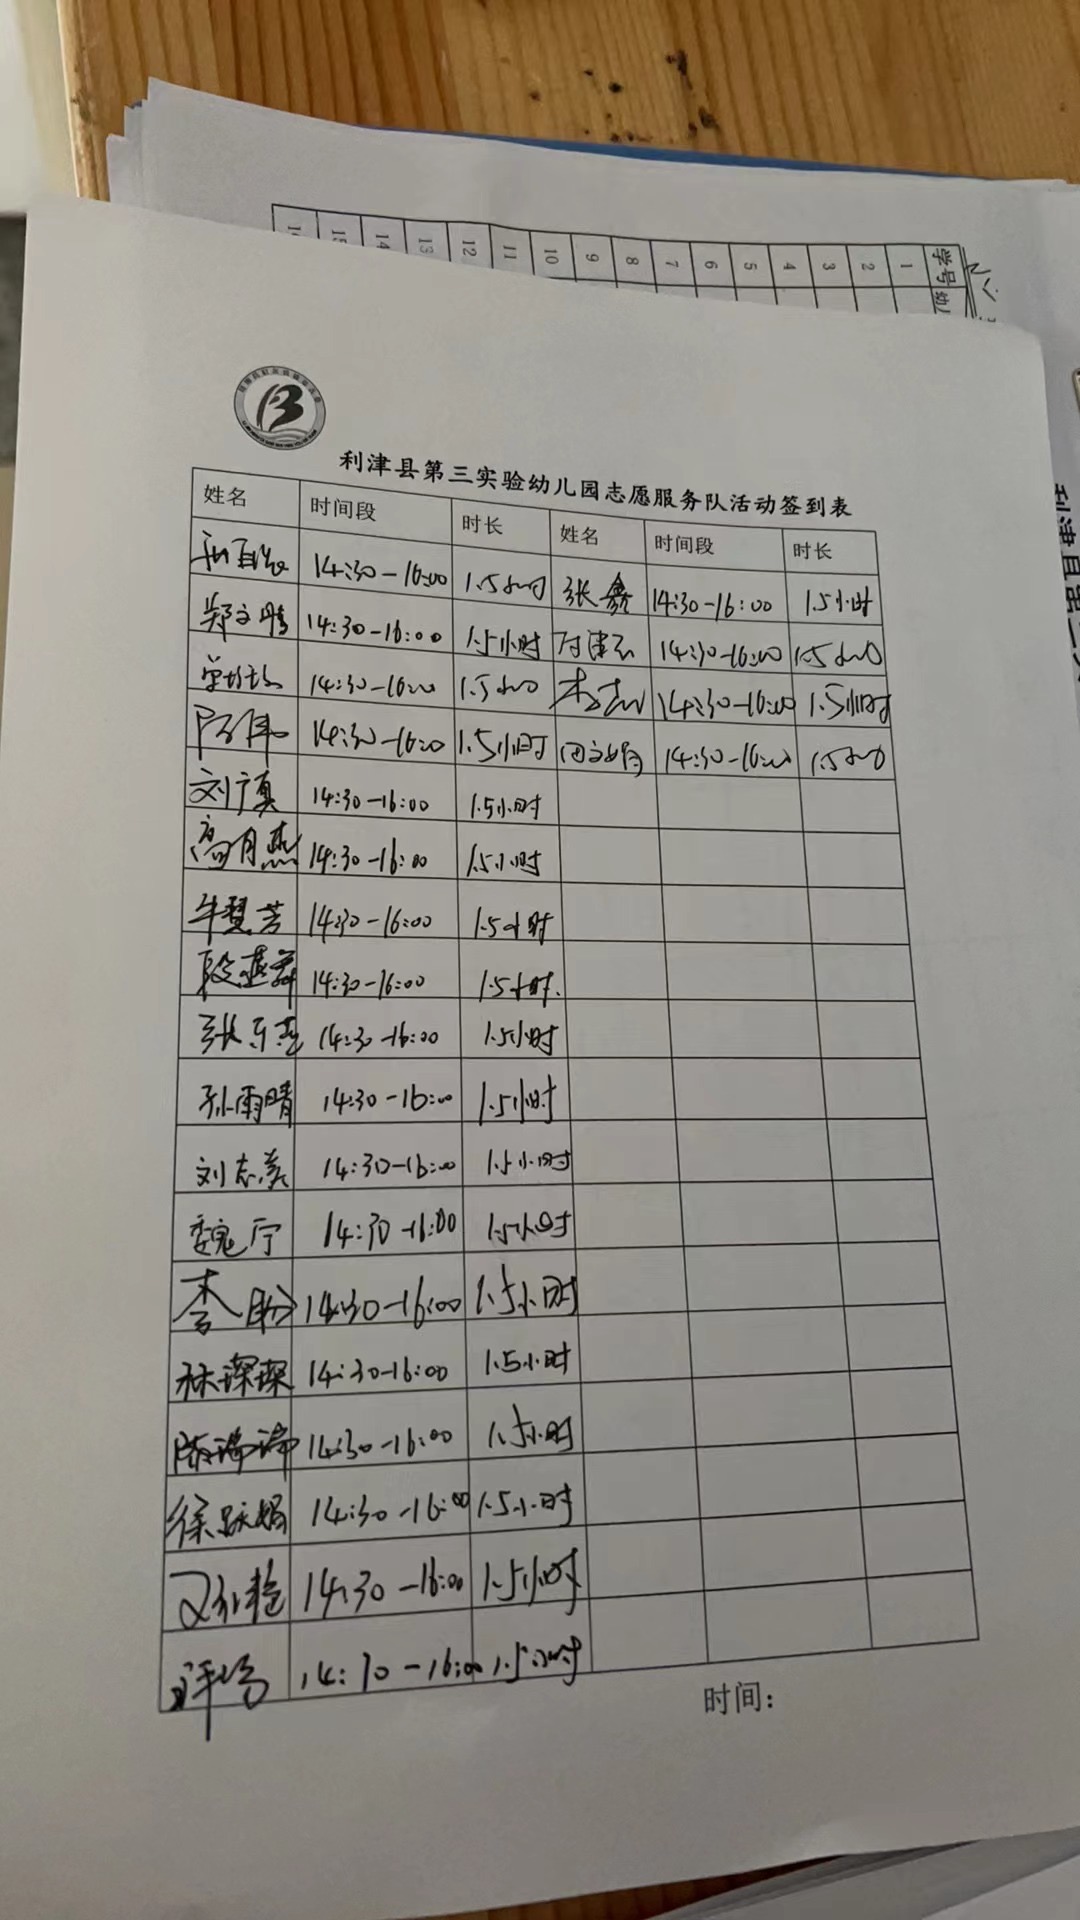 学号 1 2 3 4 5 6 7 8 9 10 11 12 13 14 15
幼儿
利津县第三实验幼儿园志愿服务队活动签到表
姓名 时间段 时长 姓名 时间段 时长
14:30-16:00 1.5小时 张鑫 14:30-16:00 1.5小时
郑文晴 14:30-16:00 1.5小时 14:30-16:00 1.5小时
14:30-16:00 1.5小时 14:30-16:00 1.5小时
14:30-16:00 1.5小时 14:30-16:00 1.5小时
刘广真 14:30-16:00 1.5小时
高月燕 14:30-16:00 1.5小时
牛慧芳 14:30-16:00 1.5小时
段燕舞 14:30-16:00 1.5小时.
张乐燕 14:30-16:00 1.5小时
孙雨晴 14:30-16:00 1.5小时
刘志 14:30-16:00 1.5小时
魏宁 14:30-16:00 1.5小时
李盼 14:30-16:00 1.5小时
林琛琛 14:30-16:00 1.5小时
陈谛谛 14:30-16:00 1.5小时
徐咏娟 14:30-16:00 1.5小时
14:30-16:00 1.5小时
14:30-16:00 1.5小时
时间：